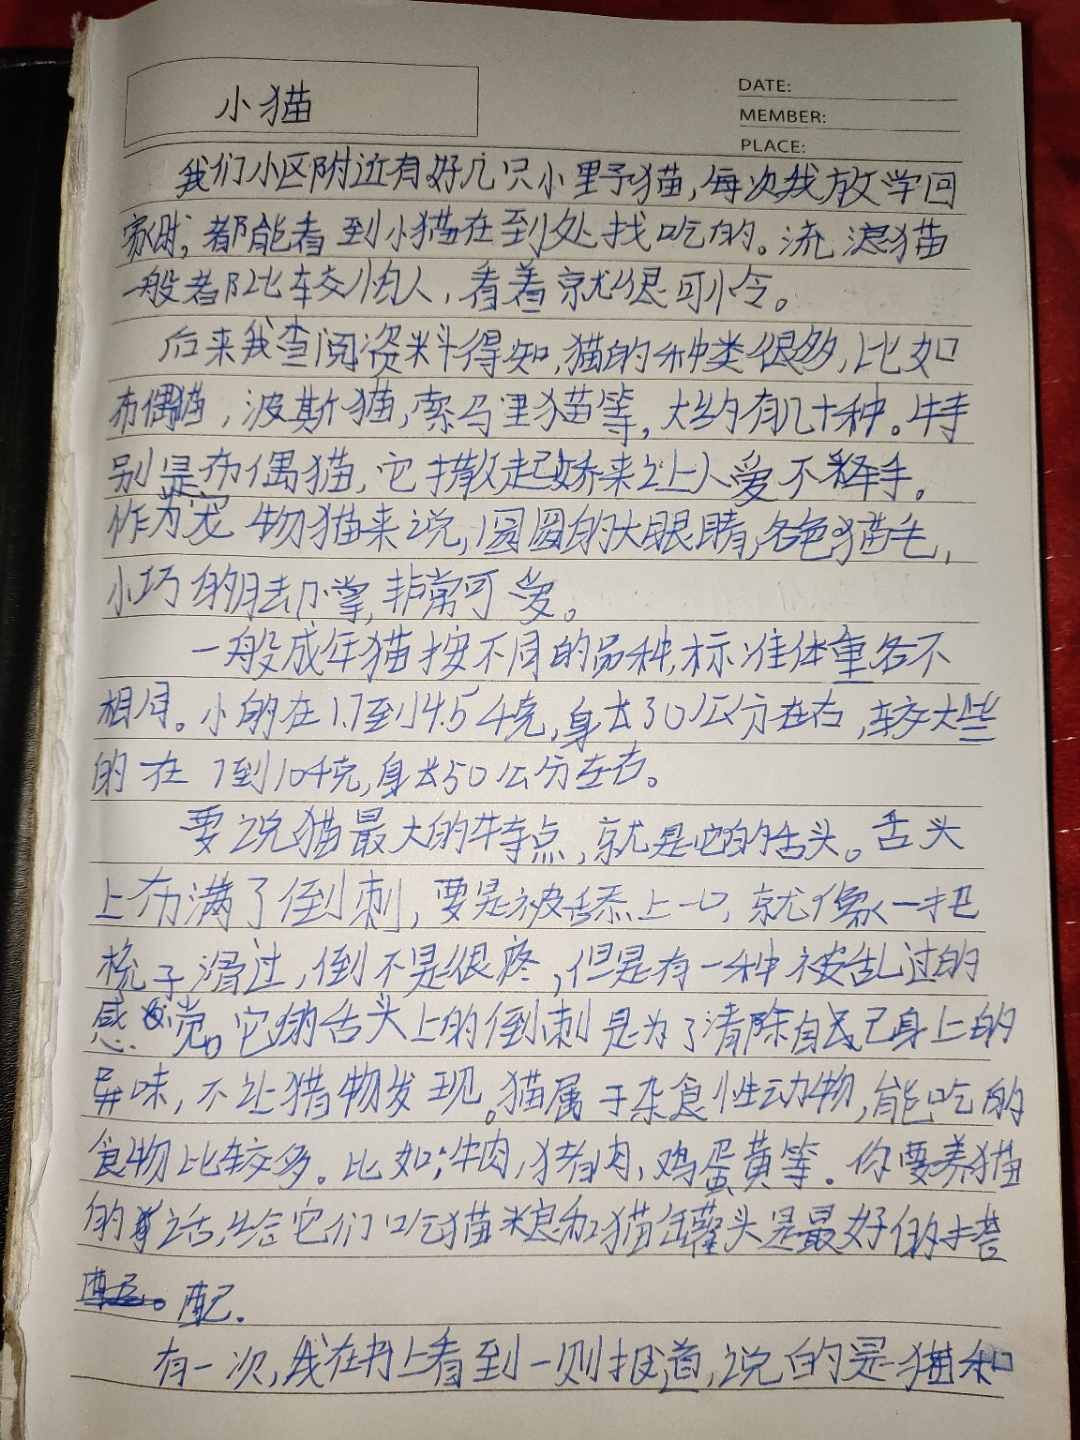 小猫
DATE:
MEMBER:
PLACE:
我们小区附近有好几只小野猫,每次我放学回
家时,都能看到小猫在到处找吃的。流浪猫
一般都比较怕人,看着就很可怜。
后来我查阅资料得知,猫的种类很多,比如
布偶猫,波斯猫,索马里猫等,大约有几十种。特
别是布偶猫,它撒起娇来让人爱不释手。
作为宠物猫来说,圆圆的大眼睛,各色猫毛,
小巧的脚掌,非常可爱。
一般成年猫按不同的品种,标准体重各不
相同。小的在1.7到4.5千克,身长30公分左右,较大些
的在7到10千克,身长50公分左右。
要说猫最大的特点,就是它的舌头。舌头
上布满了倒刺,要是被舔上一口,就像一把
梳子滑过,倒不是很疼,但是有一种被刮过的
感觉。它的舌头上的倒刺是为了清除自己身上的
异味,不让猎物发现。猫属于杂食性动物,能吃的
食物比较多。比如:牛肉,猪肉,鸡蛋黄等。你要养猫
的话,给它们吃猫粮和猫缶罐头是最好的搭
配.
有一次,我在书上看到一则报道,说的是猫和